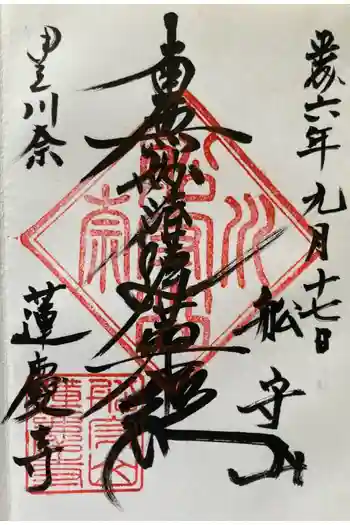 六年九月十七日
船守山
南無妙法蓮華経
伊豆川奈
蓮慶寺